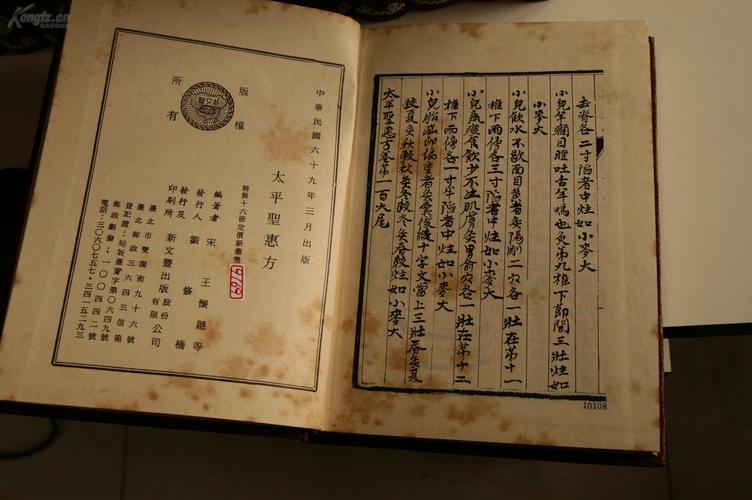 去脊各二寸陷者中炷如小麥大
小兒羊癇目瞪吐舌羊鳴也灸第九椎下節間三壯炷如
小麥大
小兒飲水不歇面目黃者灸陽剛二穴各一壯在第十一
椎下兩傍各三寸陷者中炷如小麥大
小兒羸瘦食飲少不生肌膚灸胃俞穴各一壯在第十二
椎下兩傍各一寸半陷者中炷如小麥大
小兒胎疝卵偏重者灸囊後縫十字文當上三壯春灸夏
較夏灸秋較秋灸冬較冬灸春較炷如小麥大
太平聖惠方卷第一百大尾
10108
中華民國六十九年三月出版
版權
所有
太平聖惠方
精裝十六冊定價新臺幣
編著者 宋 王懷隱等
發行人 劉修橋
發行及
印刷所 新文豐出版股份有限公司
臺北市雙園街九十六號
臺北郵政三六四三信箱
登記證:局版臺業字第〇六四九號
郵政劃撥:一〇〇四四二號
電話:三〇六〇七五七·三四一五二九三
Kongfz.cn